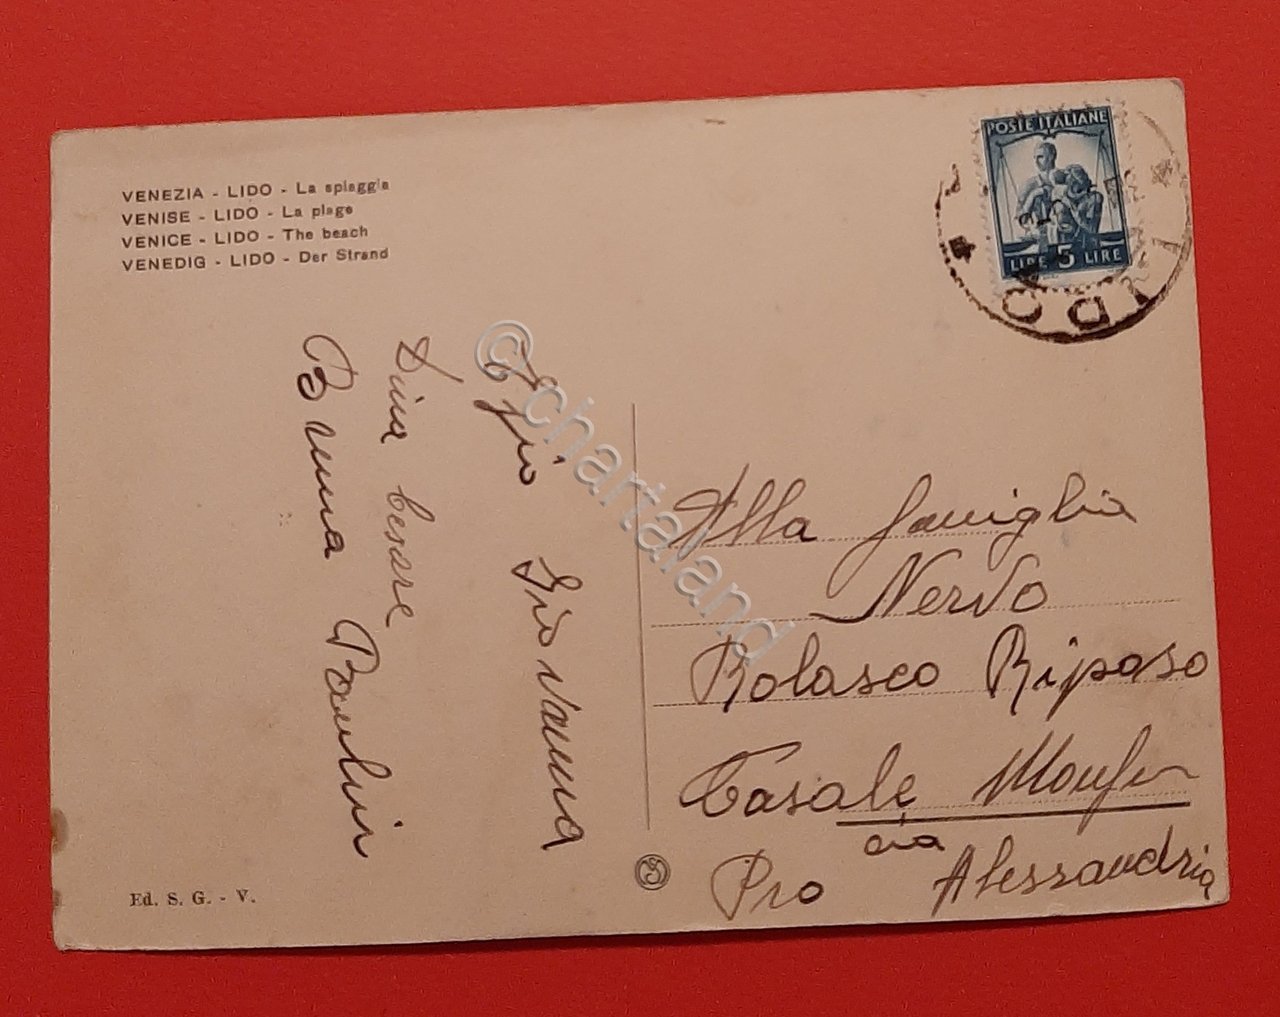 VENEZIA - LIDO - La spiaggia
VENISE - LIDO - La plage
VENICE - LIDO - The beach
VENEDIG - LIDO - Der Strand
POSTE ITALIANE
LIRE 5 LIRE
LIDO
Giovanna
Dina Cesare
Bruna Paulin
Alla famiglia
Nervo
Rolasco Riposo
Casale Monfer
Pro Alessandria
Ed. S. G. - V.
© chartaland